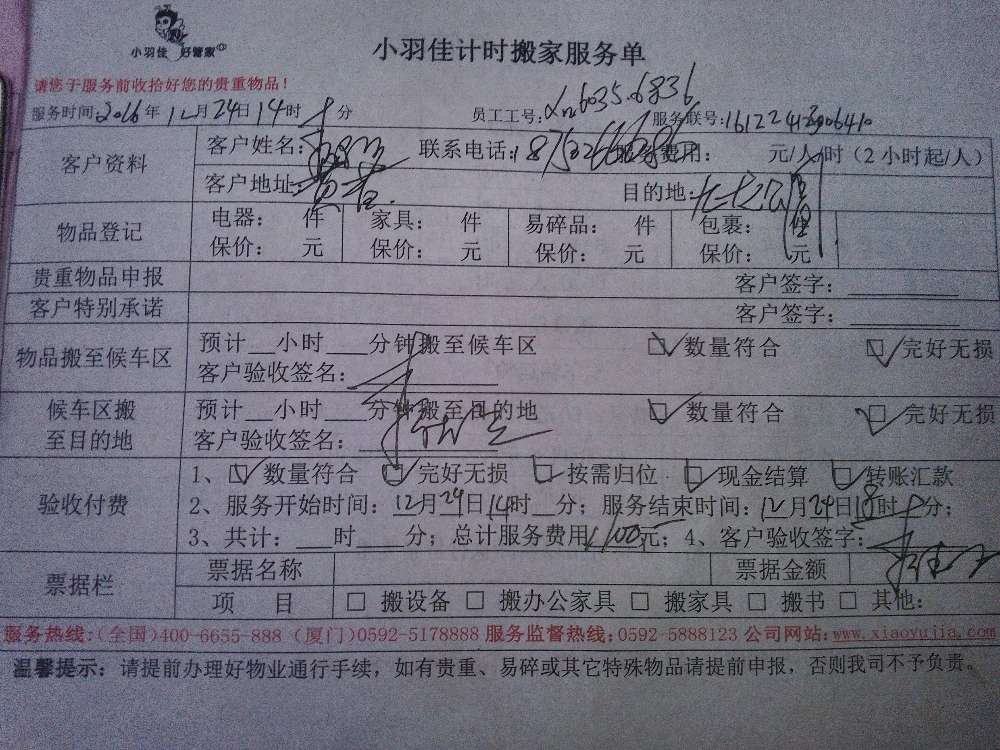 小羽佳 好管家
小羽佳计时搬家服务单
请您于服务前收拾好您的贵重物品！
服务时间：2016年12月24日14时 分 员工工号： 服务联号：
客户资料 客户姓名： 联系电话： 服务费用： 元/人/时（2小时起/人）
客户地址： 目的地：
物品登记 电器： 件 家具： 件 易碎品： 件 包裹： 件
保价： 元 保价： 元 保价： 元 保价： 元
贵重物品申报 客户签字：
客户特别承诺 客户签字：
物品搬至候车区 预计__小时___分钟搬至候车区 ☑数量符合 ☑完好无损
客户验收签名：
候车区搬至目的地 预计__小时___分钟搬至目的地 ☑数量符合 ☑完好无损
客户验收签名：
验收付费 1、☑数量符合 ☑完好无损 ☑按需归位 ☑现金结算 ☑转账汇款
2、服务开始时间：12月24日14时__分；服务结束时间：12月24日18时 分；
3、共计：___时____分；总计服务费用 元；4、客户验收签字：
票据栏 票据名称 票据金额
项 目 □ 搬设备 □ 搬办公家具 □ 搬家具 □ 搬书 □ 其他：
服务热线：（全国）400-6655-888（厦门）0592-5178888 服务监督热线：0592-5888123 公司网站：www.xiaoyujia.com
温馨提示：请提前办理好物业通行手续，如有贵重、易碎或其它特殊物品请提前申报，否则我司不予负责。